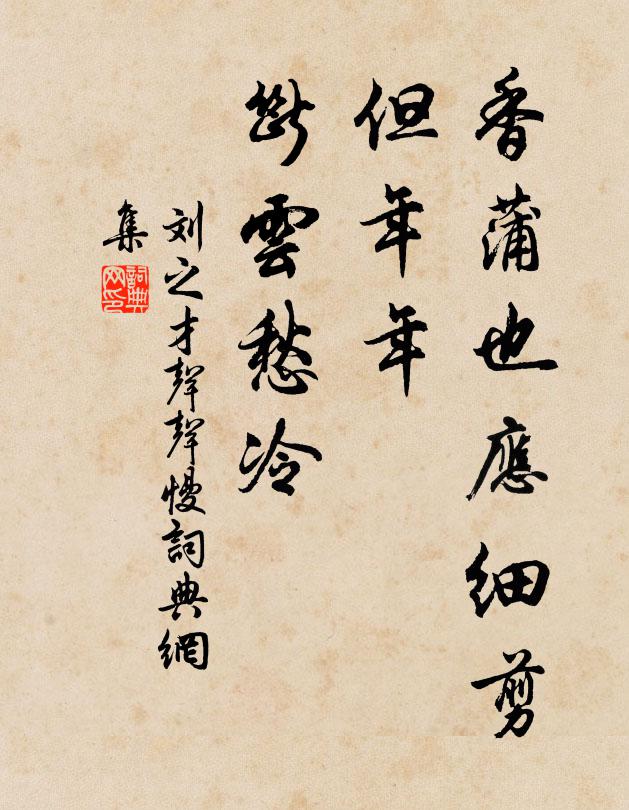 香蒲也應細剪
但年年
斷雲愁冷
刘之才聲聲慢詞典網
集
詞典网印